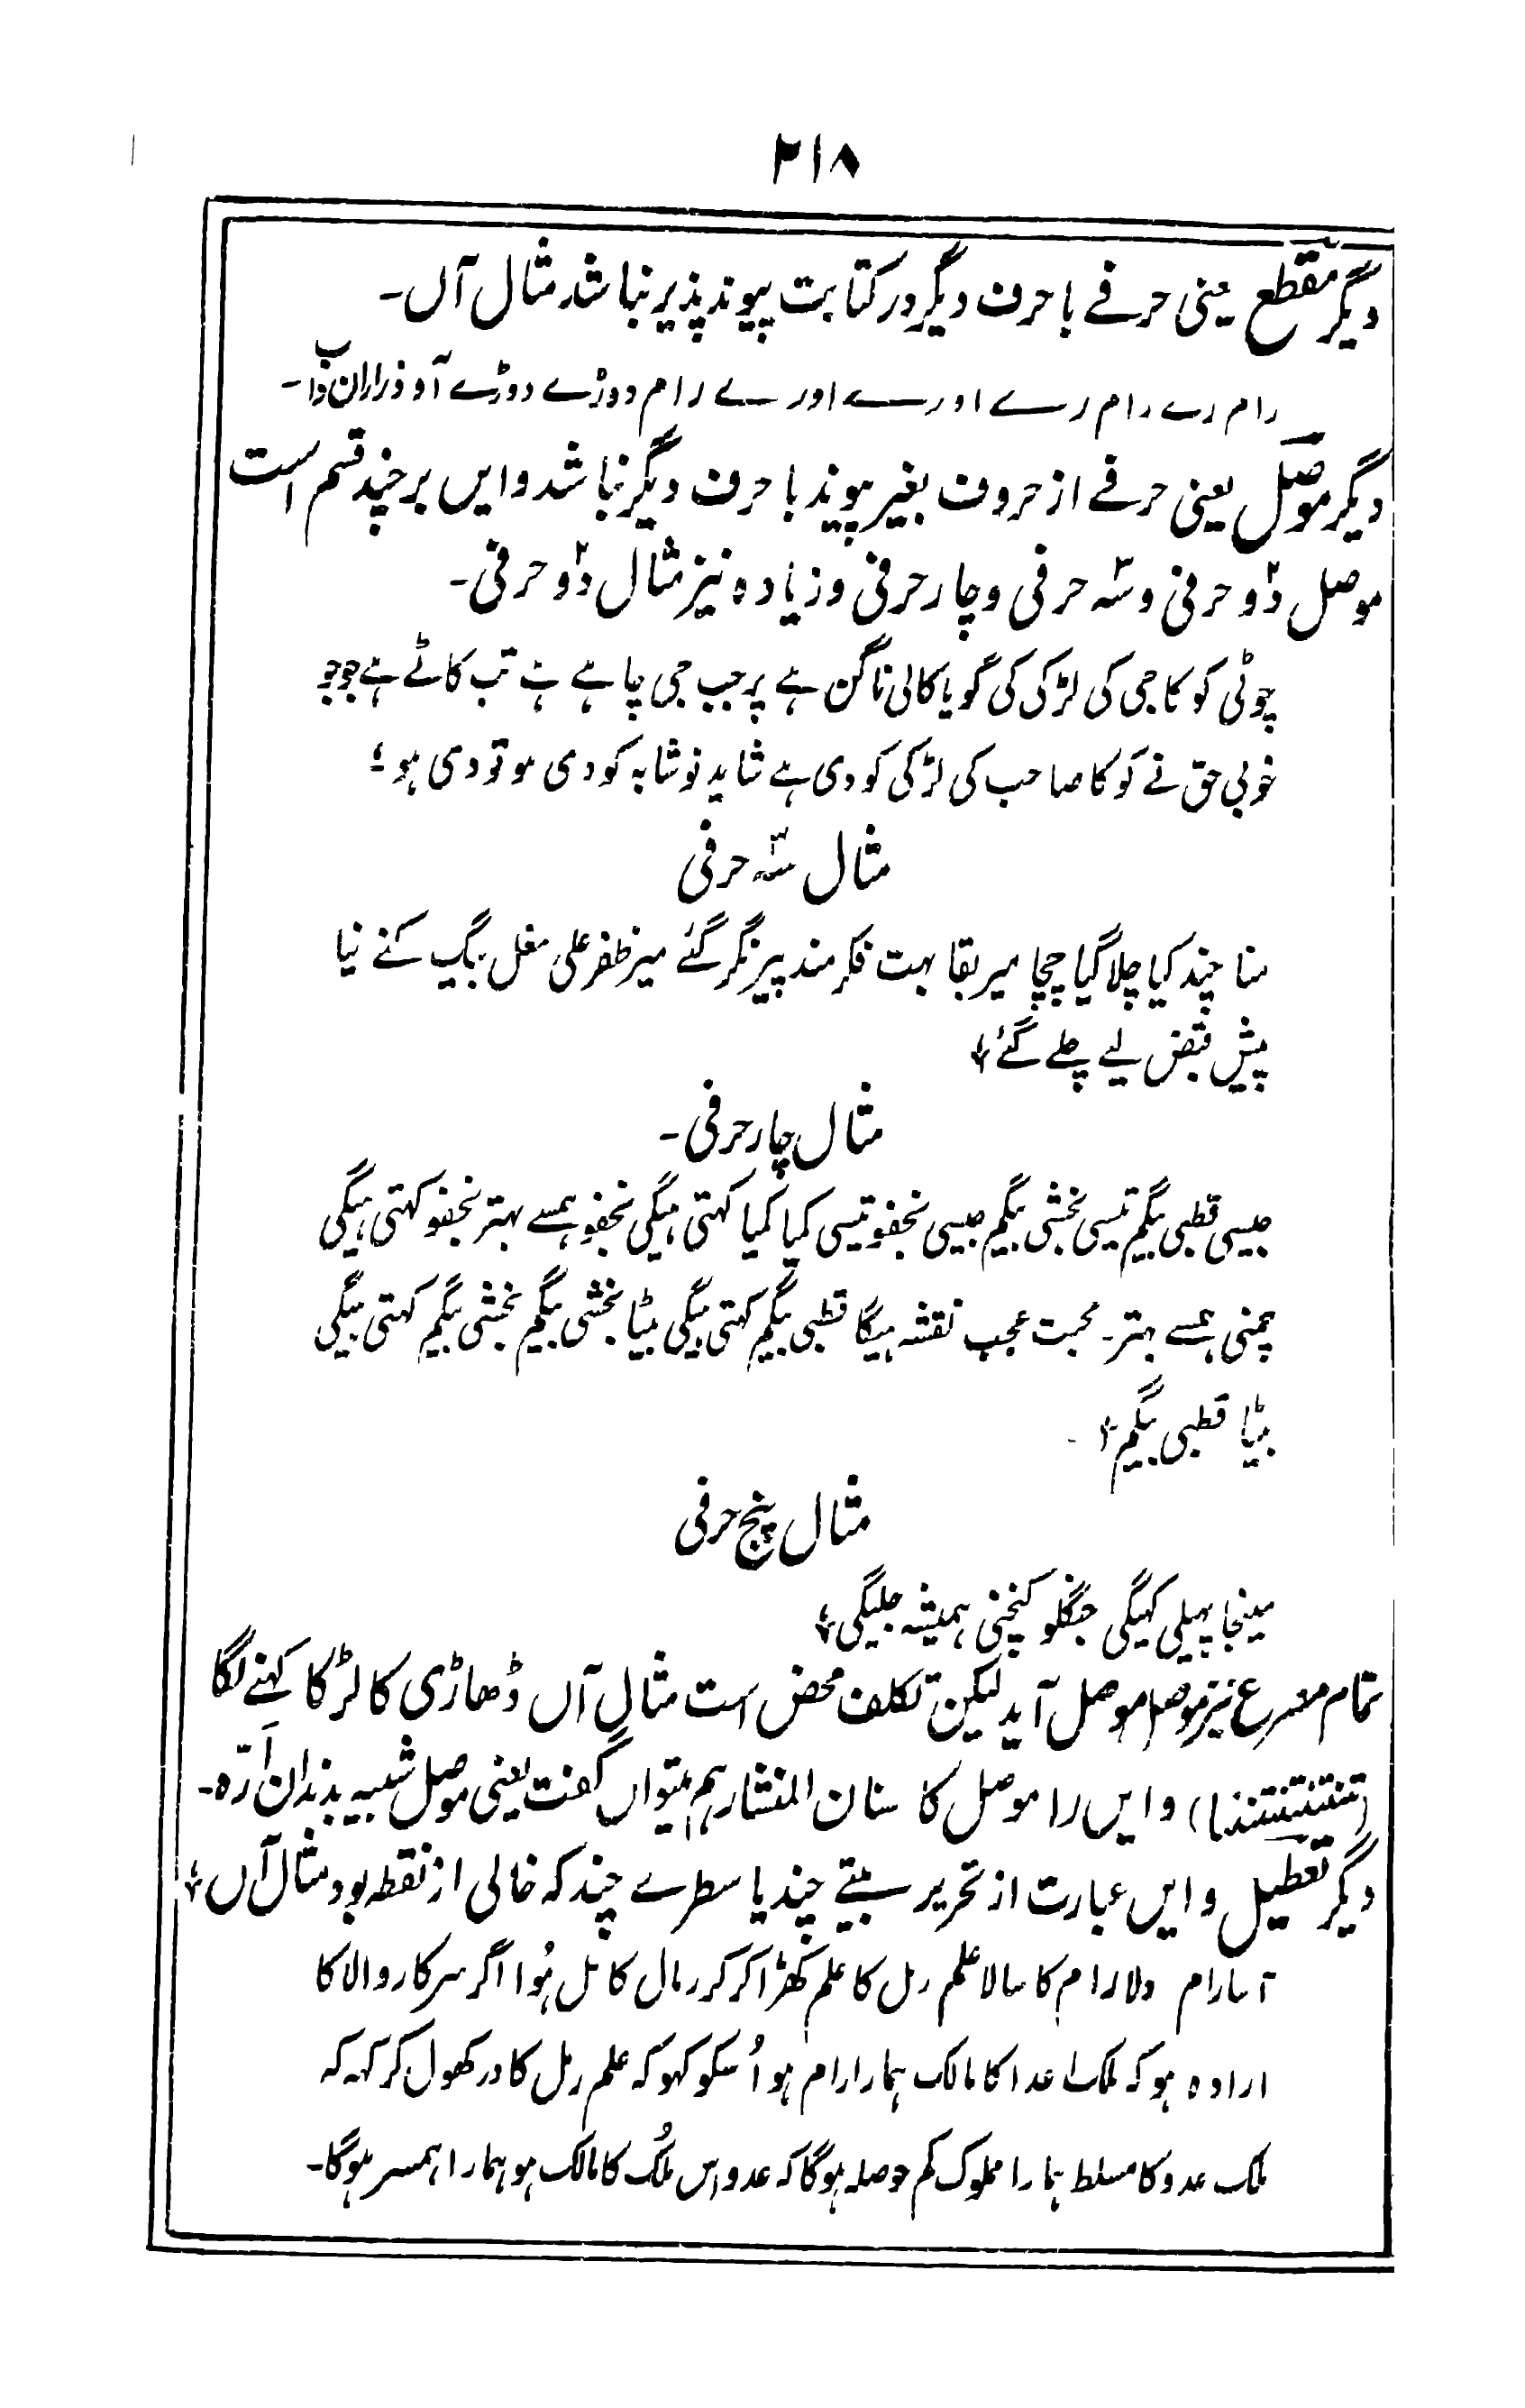 ۲۱۸
دیگر مقطع یعنی حرفے با حرف دیگر در کتابت پیوند پذیر نباشد مثال آں۔
رام رے رام رے اورے اورے رام دوڑے دوڑے آو ذرا
دیگر موصل یعنی حرفے از حروف بغیر پیوند با حرف دیگر نباشد و ایں بر چند قسم است
موصل دو حرفی و سہ حرفی و چار حرفی و زیادہ نیز مثال دو حرفی۔
چوٹی کو کاجی کی لڑکی کی گویا کالی ناگن ہے پر جب جی چاہے ہے تب کاٹے ہے جو جو
خوبی حق نے کو کا صاحب کی لڑکی کو دی ہے شاید نوشابہ کو دی ہو تو دی ہو ؛
مثال سہ حرفی
منا چند کیا چلا گیا چچا میر بقا بہت فکر مند پیر نگر گئے میر ظفر علی مغل بیگ کنے نیا
پیش قبض لیے چلے گئے؛
مثال چار حرفی۔
جیسی قطبی بیگم تیسی بخشی بیگم جیسی نجفو تیسی کیا کیا کہتی ہیگی نجفو ہمسے بہتر نجفو کہتی ہیگی
چمنی ہمسے بہتر۔ محبت عجب نقشہ ہیگا قطبی بیگم کہتی ہیگی بیٹا بخشی بیگم بخشی بیگم کہتی ہیگی
بیٹا قطبی بیگم؛
مثال پنج حرفی
مینجا پہیلی کہیگی جنگلو کنچنی ہمیشہ جلیگی؛
تمام مصرع نیز موصل موصل آید لیکن تکلف محض است مثال آں ڈھاڑی کا لڑکا کہنے لگا
و ایں را موصل کا سنان المنشار ہم میتواں گفت یعنی موصل شبیہ بدندان ارّہ۔
دیگر تعطیل و ایں عبارت از تحریر بیتے چند یا سطرے چند کہ خالی از نقطہ بود مثال آں؛
آسا رام دلا رام کا سالا علم رمل کا علم کھڑا کر کر رمال کامل ہُوا اگر سرکار والا کا
ارادہ ہو کہ ملک اعدا کا مالک ہمارا رام ہو اُسکو کہو کہ علم رمل کا در کھول کر کہہ کہ
ملک عدو کا مسلط ہمارا مملوک کم حوصلہ ہوگا کہ عدو اس مُلک کا مالک ہو ہمارا ہمسر ہوگا۔